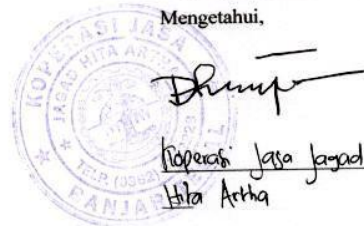 Mengetahui,
KOPERASI JASA
JAGAD HITA ARTHA
TELP. (0362)
BANJAR
Koperasi Jasa Jagad
Hita Artha